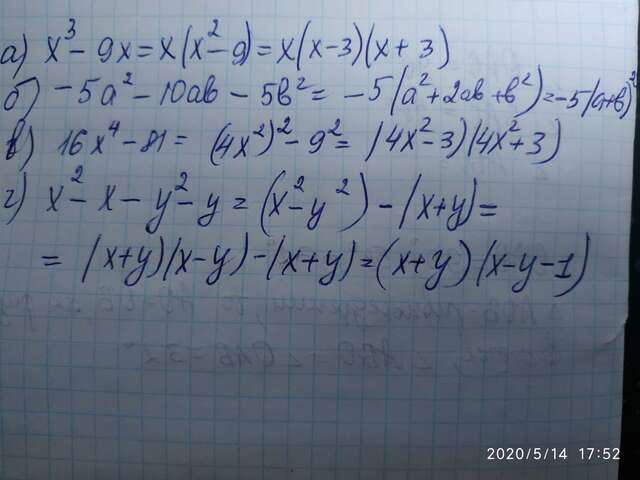 а) x³ - 9x = x(x² - 9) = x(x - 3)(x + 3)
б) -5a² - 10ab - 5b² = -5(a² + 2ab + b²) = -5(a+b)²
в) 16x⁴ - 81 = (4x²)² - 9² = (4x² - 3)(4x² + 3)
г) x² - x - y² - y = (x² - y²) - (x+y) =
= (x+y)(x-y) - (x+y) = (x+y)(x-y-1)
2020/5/14 17:52